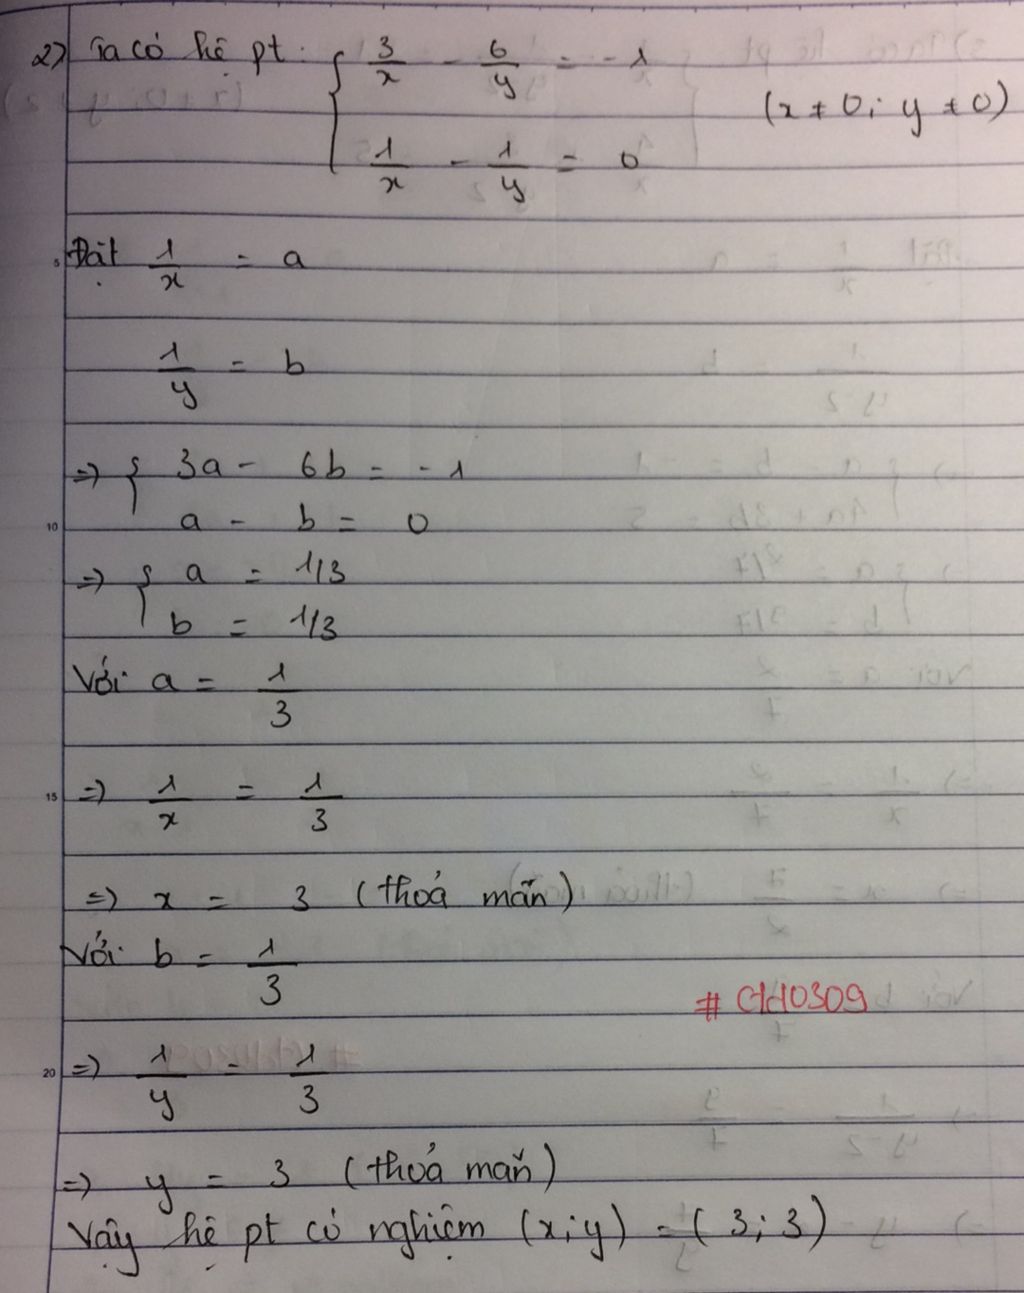 2) Ta có hệ pt: { 3/x - 6/y = -1
(x ≠ 0; y ≠ 0)
1/x - 1/y = 0
Đặt 1/x = a
1/y = b
=> { 3a - 6b = -1
a - b = 0
=> { a = 1/3
b = 1/3
Với a = 1/3
=> 1/x = 1/3
=> x = 3 (thoả mãn)
Với b = 1/3
=> 1/y = 1/3
=> y = 3 (thoả mãn)
Vậy hệ pt có nghiệm (x;y) = (3; 3)
5
10
15
20